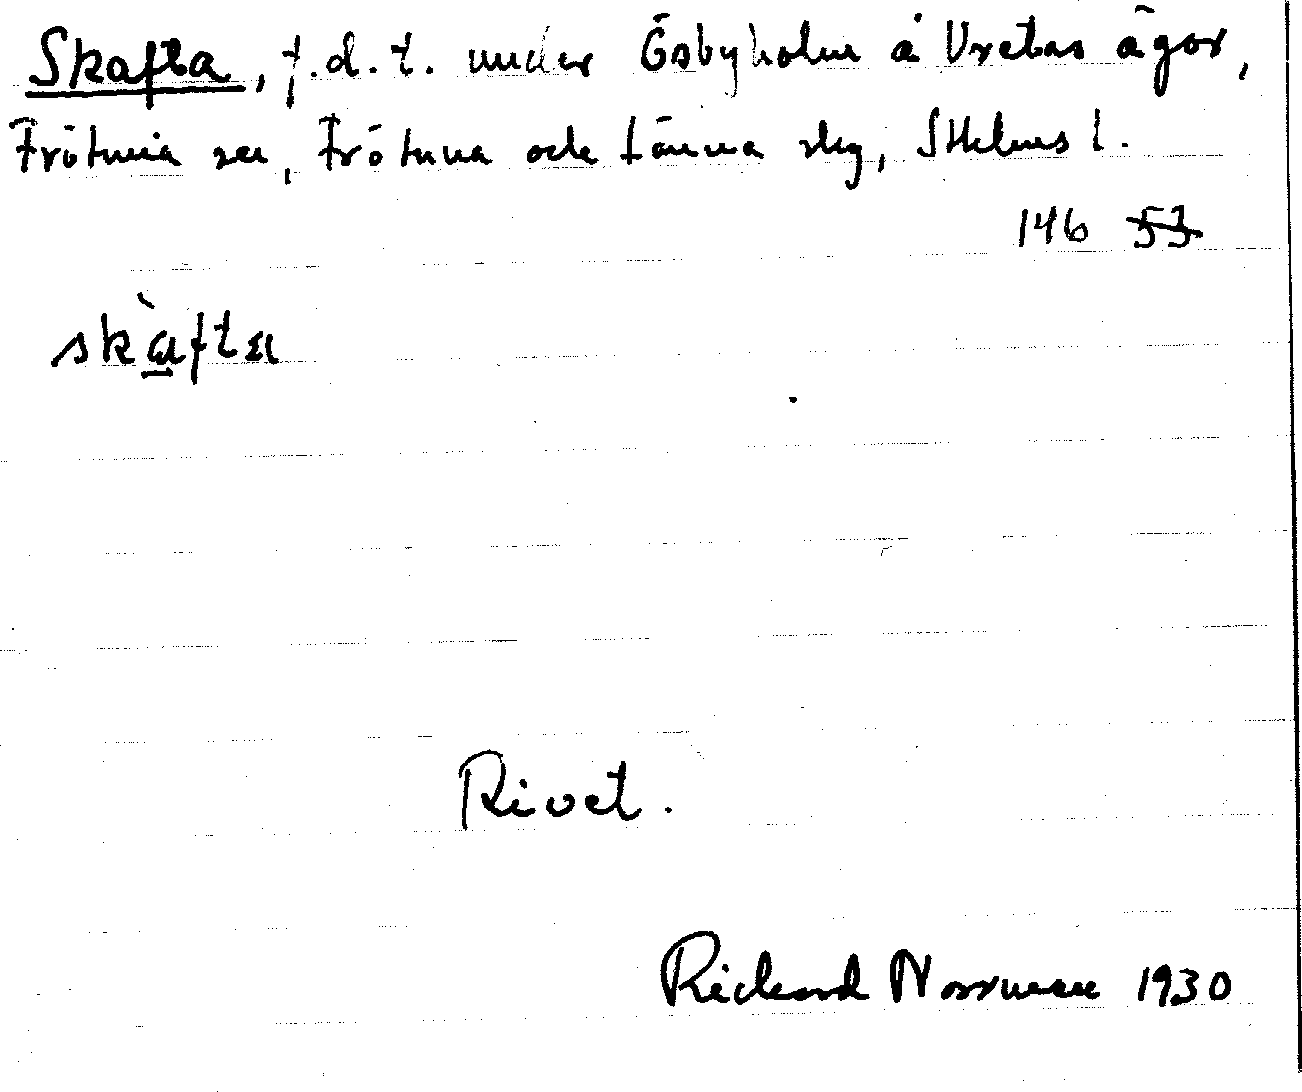 Skafta, f.d.t. under Ösbyholm å Vretas ägor,
Frötuna sn, Frötuna och Länna skg, Sthlms l.
146 53
skàfta
Rivet.
Rickard Norrman 1930